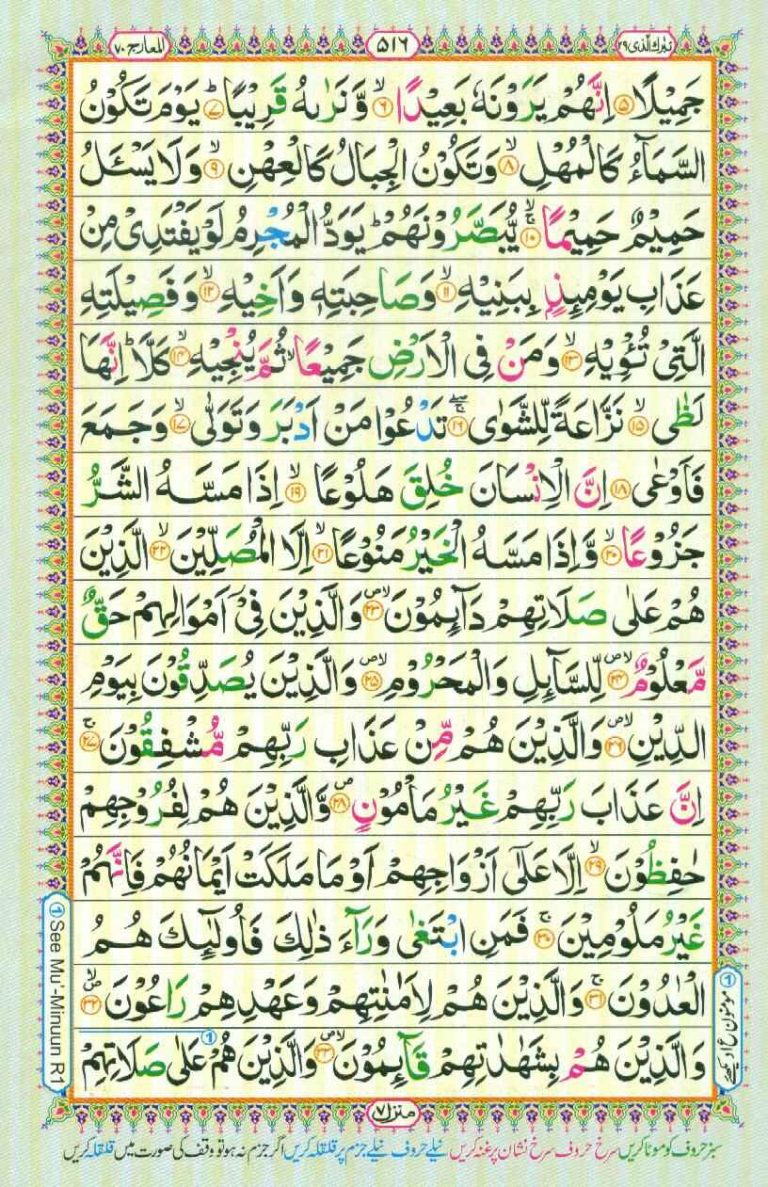 تبرك الذی ۲۹
۵۱۶
المعارج ۷۰
جَمِيْلًا ۝۵ اِنَّهُمْ يَرَوْنَهٗ بَعِيْدًا ۝۶ۙ وَّنَرٰىهُ قَرِيْبًا ۝۷ؕ يَوْمَ تَكُوْنُ
السَّمَآءُ كَالْمُهْلِ ۝۸ۙ وَتَكُوْنُ الْجِبَالُ كَالْعِهْنِ ۝۹ۙ وَلَا يَسْـَٔلُ
حَمِيْمٌ حَمِيْمًا ۝۱۰ۚۖ يُّبَصَّرُوْنَهُمْ ؕ يَوَدُّ الْمُجْرِمُ لَوْ يَفْتَدِىْ مِنْ
عَذَابِ يَوْمِئِذٍۭ بِبَنِيْهِ ۝۱۱ۙ وَصَاحِبَتِهٖ وَاَخِيْهِ ۝۱۲ۙ وَفَصِيْلَتِهِ
الَّتِىْ تُـْٔوِيْهِ ۝۱۳ۙ وَمَنْ فِى الْاَرْضِ جَمِيْعًا ۙ ثُمَّ يُنْجِيْهِ ۝۱۴ۙ كَلَّا ؕ اِنَّهَا
لَظٰى ۝۱۵ۙ نَزَّاعَةً لِّلشَّوٰى ۝۱۶ۚۖ تَدْعُوْا مَنْ اَدْبَرَ وَتَوَلّٰى ۝۱۷ۙ وَجَمَعَ
فَاَوْعٰى ۝۱۸ اِنَّ الْاِنْسَانَ خُلِقَ هَلُوْعًا ۝۱۹ۙ اِذَا مَسَّهُ الشَّرُّ
جَزُوْعًا ۝۲۰ۙ وَّاِذَا مَسَّهُ الْخَيْرُ مَنُوْعًا ۝۲۱ۙ اِلَّا الْمُصَلِّيْنَ ۝۲۲ۙ الَّذِيْنَ
هُمْ عَلٰى صَلَاتِهِمْ دَآئِمُوْنَ ۝۲۳۪ۙ وَالَّذِيْنَ فِىْۤ اَمْوَالِهِمْ حَقٌّ
مَّعْلُوْمٌ ۝۲۴۪ۙ لِّلسَّآئِلِ وَالْمَحْرُوْمِ ۝۲۵۪ۙ وَالَّذِيْنَ يُصَدِّقُوْنَ بِيَوْمِ
الدِّيْنِ ۝۲۶۪ۙ وَالَّذِيْنَ هُمْ مِّنْ عَذَابِ رَبِّهِمْ مُّشْفِقُوْنَ ۝۲۷ۚ
اِنَّ عَذَابَ رَبِّهِمْ غَيْرُ مَاْمُوْنٍ ۝۲۸ وَّالَّذِيْنَ هُمْ لِفُرُوْجِهِمْ
حٰفِظُوْنَ ۝۲۹ۙ اِلَّا عَلٰۤى اَزْوَاجِهِمْ اَوْ مَا مَلَكَتْ اَيْمَانُهُمْ فَاِنَّهُمْ
غَيْرُ مَلُوْمِيْنَ ۝۳۰ۚ فَمَنِ ابْتَغٰى وَرَآءَ ذٰلِكَ فَاُولٰٓئِكَ هُمُ
الْعٰدُوْنَ ۝۳۱ۚ وَالَّذِيْنَ هُمْ لِاَمٰنٰتِهِمْ وَعَهْدِهِمْ رَاعُوْنَ ۝۳۲۪ۙ
وَالَّذِيْنَ هُمْ بِشَهٰدٰتِهِمْ قَآئِمُوْنَ ۝۳۳۪ۙ وَالَّذِيْنَ هُمْ عَلٰى صَلَاتِهِمْ
① See Mu'-Minuun R1
مؤمنون ع ۱ دیکھئے
منزل ۷
سبز حروف کو موٹا کریں سرخ حروف سرخ نشان پر غنہ کریں نیلے حروف نیلے جزم پر قلقلہ کریں اگر جزم نہ ہو تو وقف کی صورت میں قلقلہ کریں